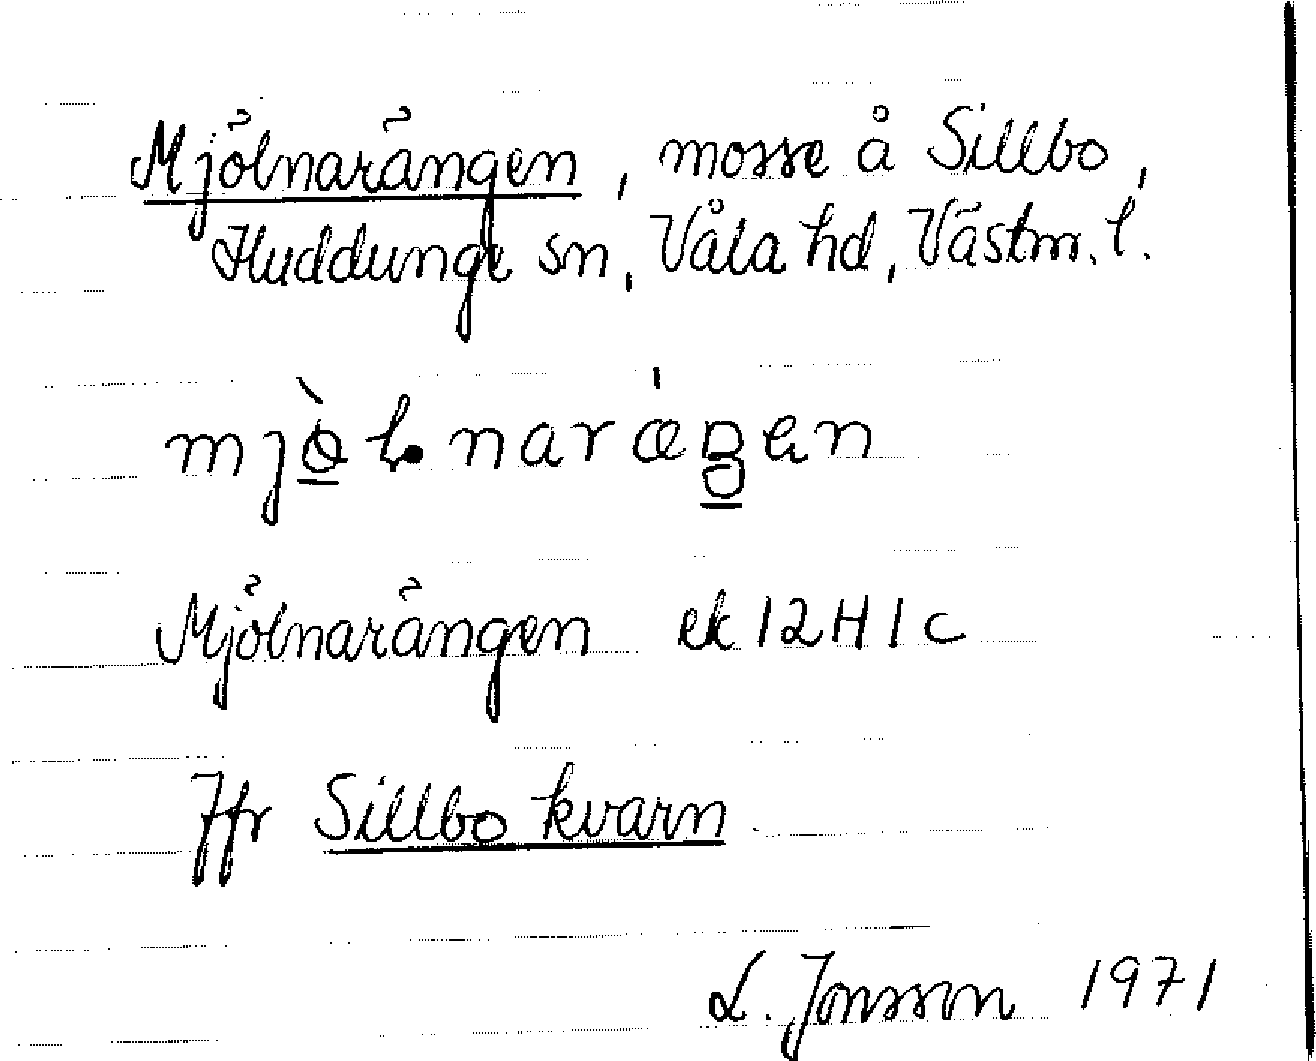 Mjölnarängen, mosse å Sillbo,
Huddunge sn, Våla hd, Västm. l.
Mjölnarängen ek 12H1c
Jfr Sillbo kvarn
L. Jonsson 1971